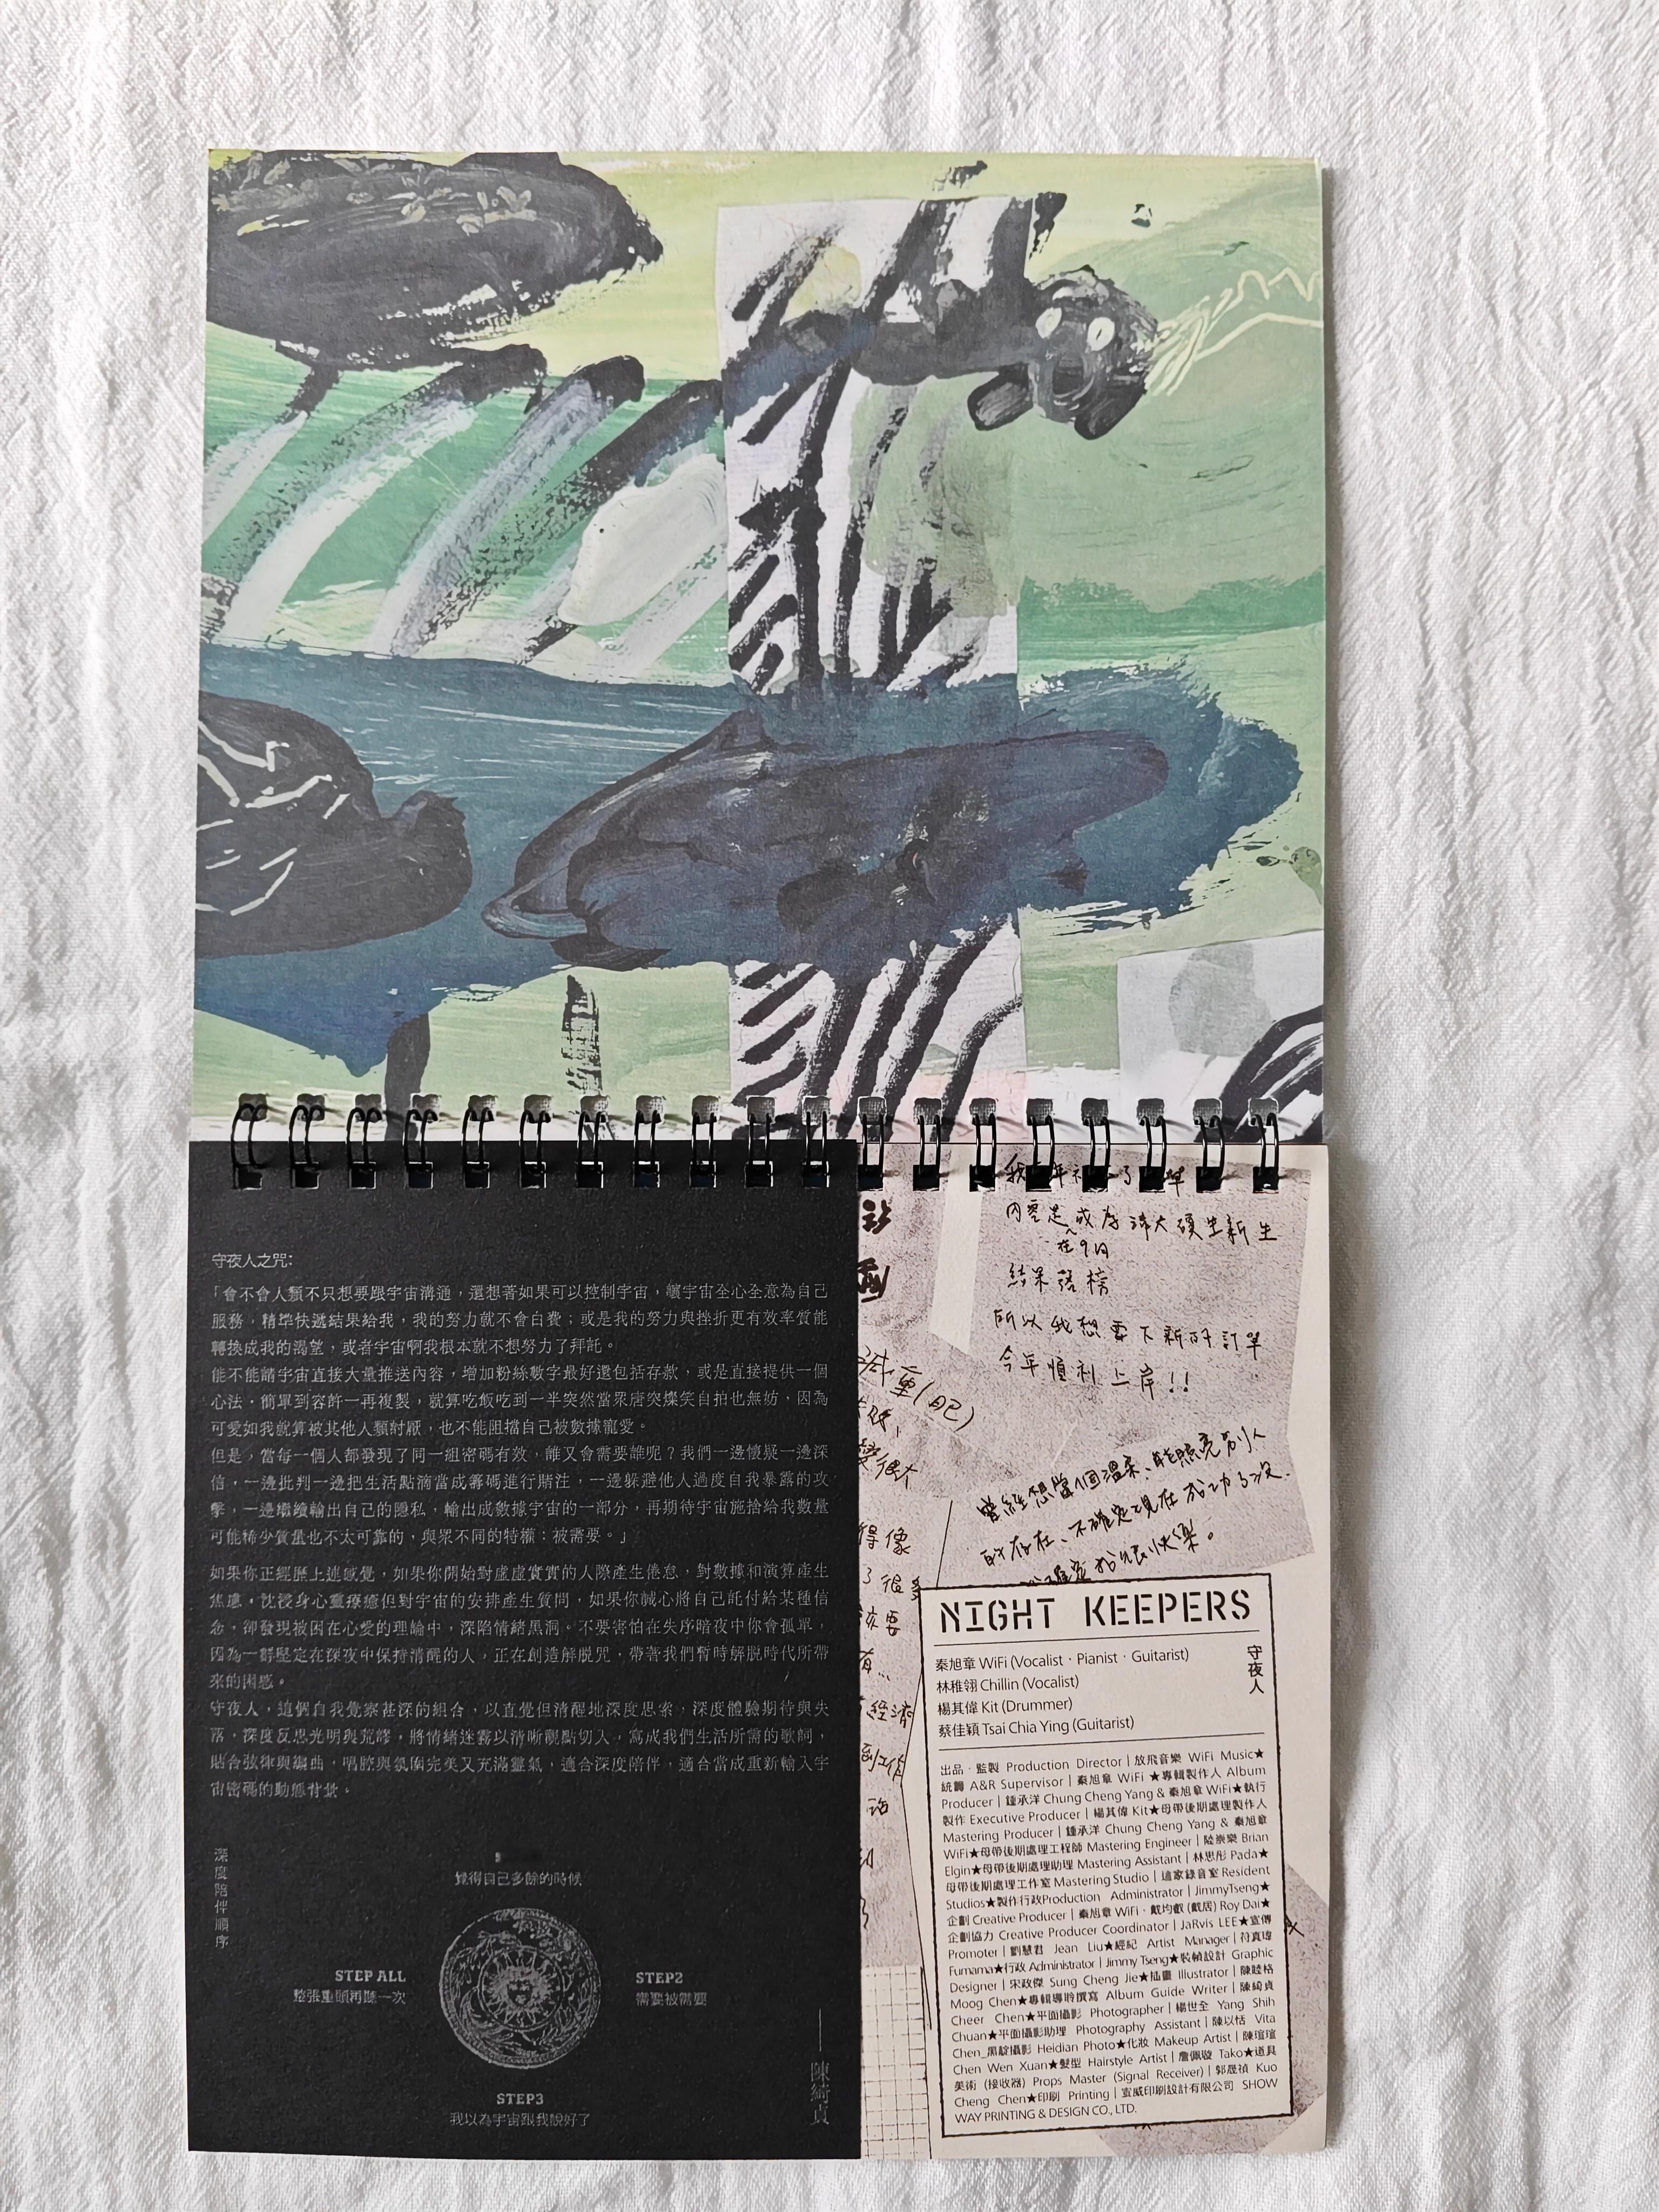 守夜人之咒：
「會不會人類不只想要跟宇宙溝通，還想著如果可以控制宇宙，讓宇宙全心全意為自己
服務，精準快遞結果給我，我的努力就不會白費；或是我的努力與挫折更有效率質能
轉換成我的渴望，或者宇宙啊我根本就不想努力了拜託。
能不能請宇宙直接大量推送內容，增加粉絲數字最好還包括存款，或是直接提供一個
心法，簡單到容許一再複製，就算吃飯吃到一半突然當眾唐突燦笑自拍也無妨，因為
可愛如我就算被其他人類討厭，也不能阻擋自己被數據寵愛。
但是，當每一個人都發現了同一組密碼有效，誰又會需要誰呢？我們一邊懷疑一邊深
信，一邊批判一邊把生活點滴當成籌碼進行賭注，一邊躲避他人過度自我暴露的攻
擊，一邊繼續輸出自己的隱私，輸出成數據宇宙的一部分，再期待宇宙施捨給我數量
可能稀少質量也不太可靠的，與眾不同的特權：被需要。」
如果你正經歷上述感覺，如果你開始對虛虛實實的人際產生倦怠，對數據和演算產生
焦慮，沈浸身心靈療癒但對宇宙的安排產生質問，如果你誠心將自己託付給某種信
念，卻發現被困在心愛的理論中，深陷情緒黑洞。不要害怕在失序暗夜中你會孤單，
因為一群堅定在深夜中保持清醒的人，正在創造解脫咒，帶著我們暫時解脫時代所帶
來的困惑。
守夜人，這個自我覺察甚深的組合，以直覺但清醒地深度思索，深度體驗期待與失
落，深度反思光明與荒謬，將情緒迷霧以清晰觀點切入，寫成我們生活所需的歌詞，
貼合弦律與編曲，唱腔與氛圍完美又充滿靈氣，適合深度陪伴，適合當成重新輸入宇
宙密碼的動態背景。
深度陪伴順序
覺得自己多餘的時候
STEP ALL
整張重頭再聽一次
STEP2
需要被需要
STEP3
我以為宇宙跟我說好了
——陳綺貞
內容是我為清大碩士新生
在9月
結果落榜
所以我想要下新的訂單
今年順利上岸!!
減重(自己)
變很大
曾經想當個溫柔、能照亮別人
的存在、不確定現在成功了沒.
得像
了很多
該要
有...
經濟
到工作
NIGHT KEEPERS
守夜人
秦旭章 WiFi (Vocalist · Pianist · Guitarist)
林稚翎 Chillin (Vocalist)
楊其偉 Kit (Drummer)
蔡佳穎 Tsai Chia Ying (Guitarist)
出品．監製 Production Director | 放飛音樂 WiFi Music★
統籌 A&R Supervisor | 秦旭章 WiFi ★專輯製作人 Album
Producer | 鍾承洋 Chung Cheng Yang & 秦旭章 WiFi★執行
製作 Executive Producer | 楊其偉 Kit★母帶後期處理製作人
Mastering Producer | 鍾承洋 Chung Cheng Yang & 秦旭章
WiFi★母帶後期處理工程師 Mastering Engineer | 陸崇樂 Brian
Elgin★母帶後期處理助理 Mastering Assistant | 林思彤 Pada★
母帶後期處理工作室 Mastering Studio | 這家錄音室 Resident
Studios★製作行政Production Administrator | JimmyTseng★
企劃 Creative Producer | 秦旭章 WiFi．戴均叡 (戴居) Roy Dai★
企劃協力 Creative Producer Coordinator | JaRvis LEE★宣傳
Promoter | 劉慧君 Jean Liu★經紀 Artist Manager | 符真瑋
Fumama★行政 Administrator | Jimmy Tseng★裝幀設計 Graphic
Designer | 宋政傑 Sung Cheng Jie★插畫 Illustrator | 陳睦格
Moog Chen★專輯導聆撰寫 Album Guide Writer | 陳綺貞
Cheer Chen★平面攝影 Photographer | 楊世全 Yang Shih
Chuan★平面攝影助理 Photography Assistant | 陳以恬 Vita
Chen_黑靛攝影 Heidian Photo★化妝 Makeup Artist | 陳瑄瑄
Chen Wen Xuan★髮型 Hairstyle Artist | 詹佩璇 Tako★道具
美術 (接收器) Props Master (Signal Receiver) | 郭晟禎 Kuo
Cheng Chen★印刷 Printing | 宣威印刷設計有限公司 SHOW
WAY PRINTING & DESIGN CO., LTD.